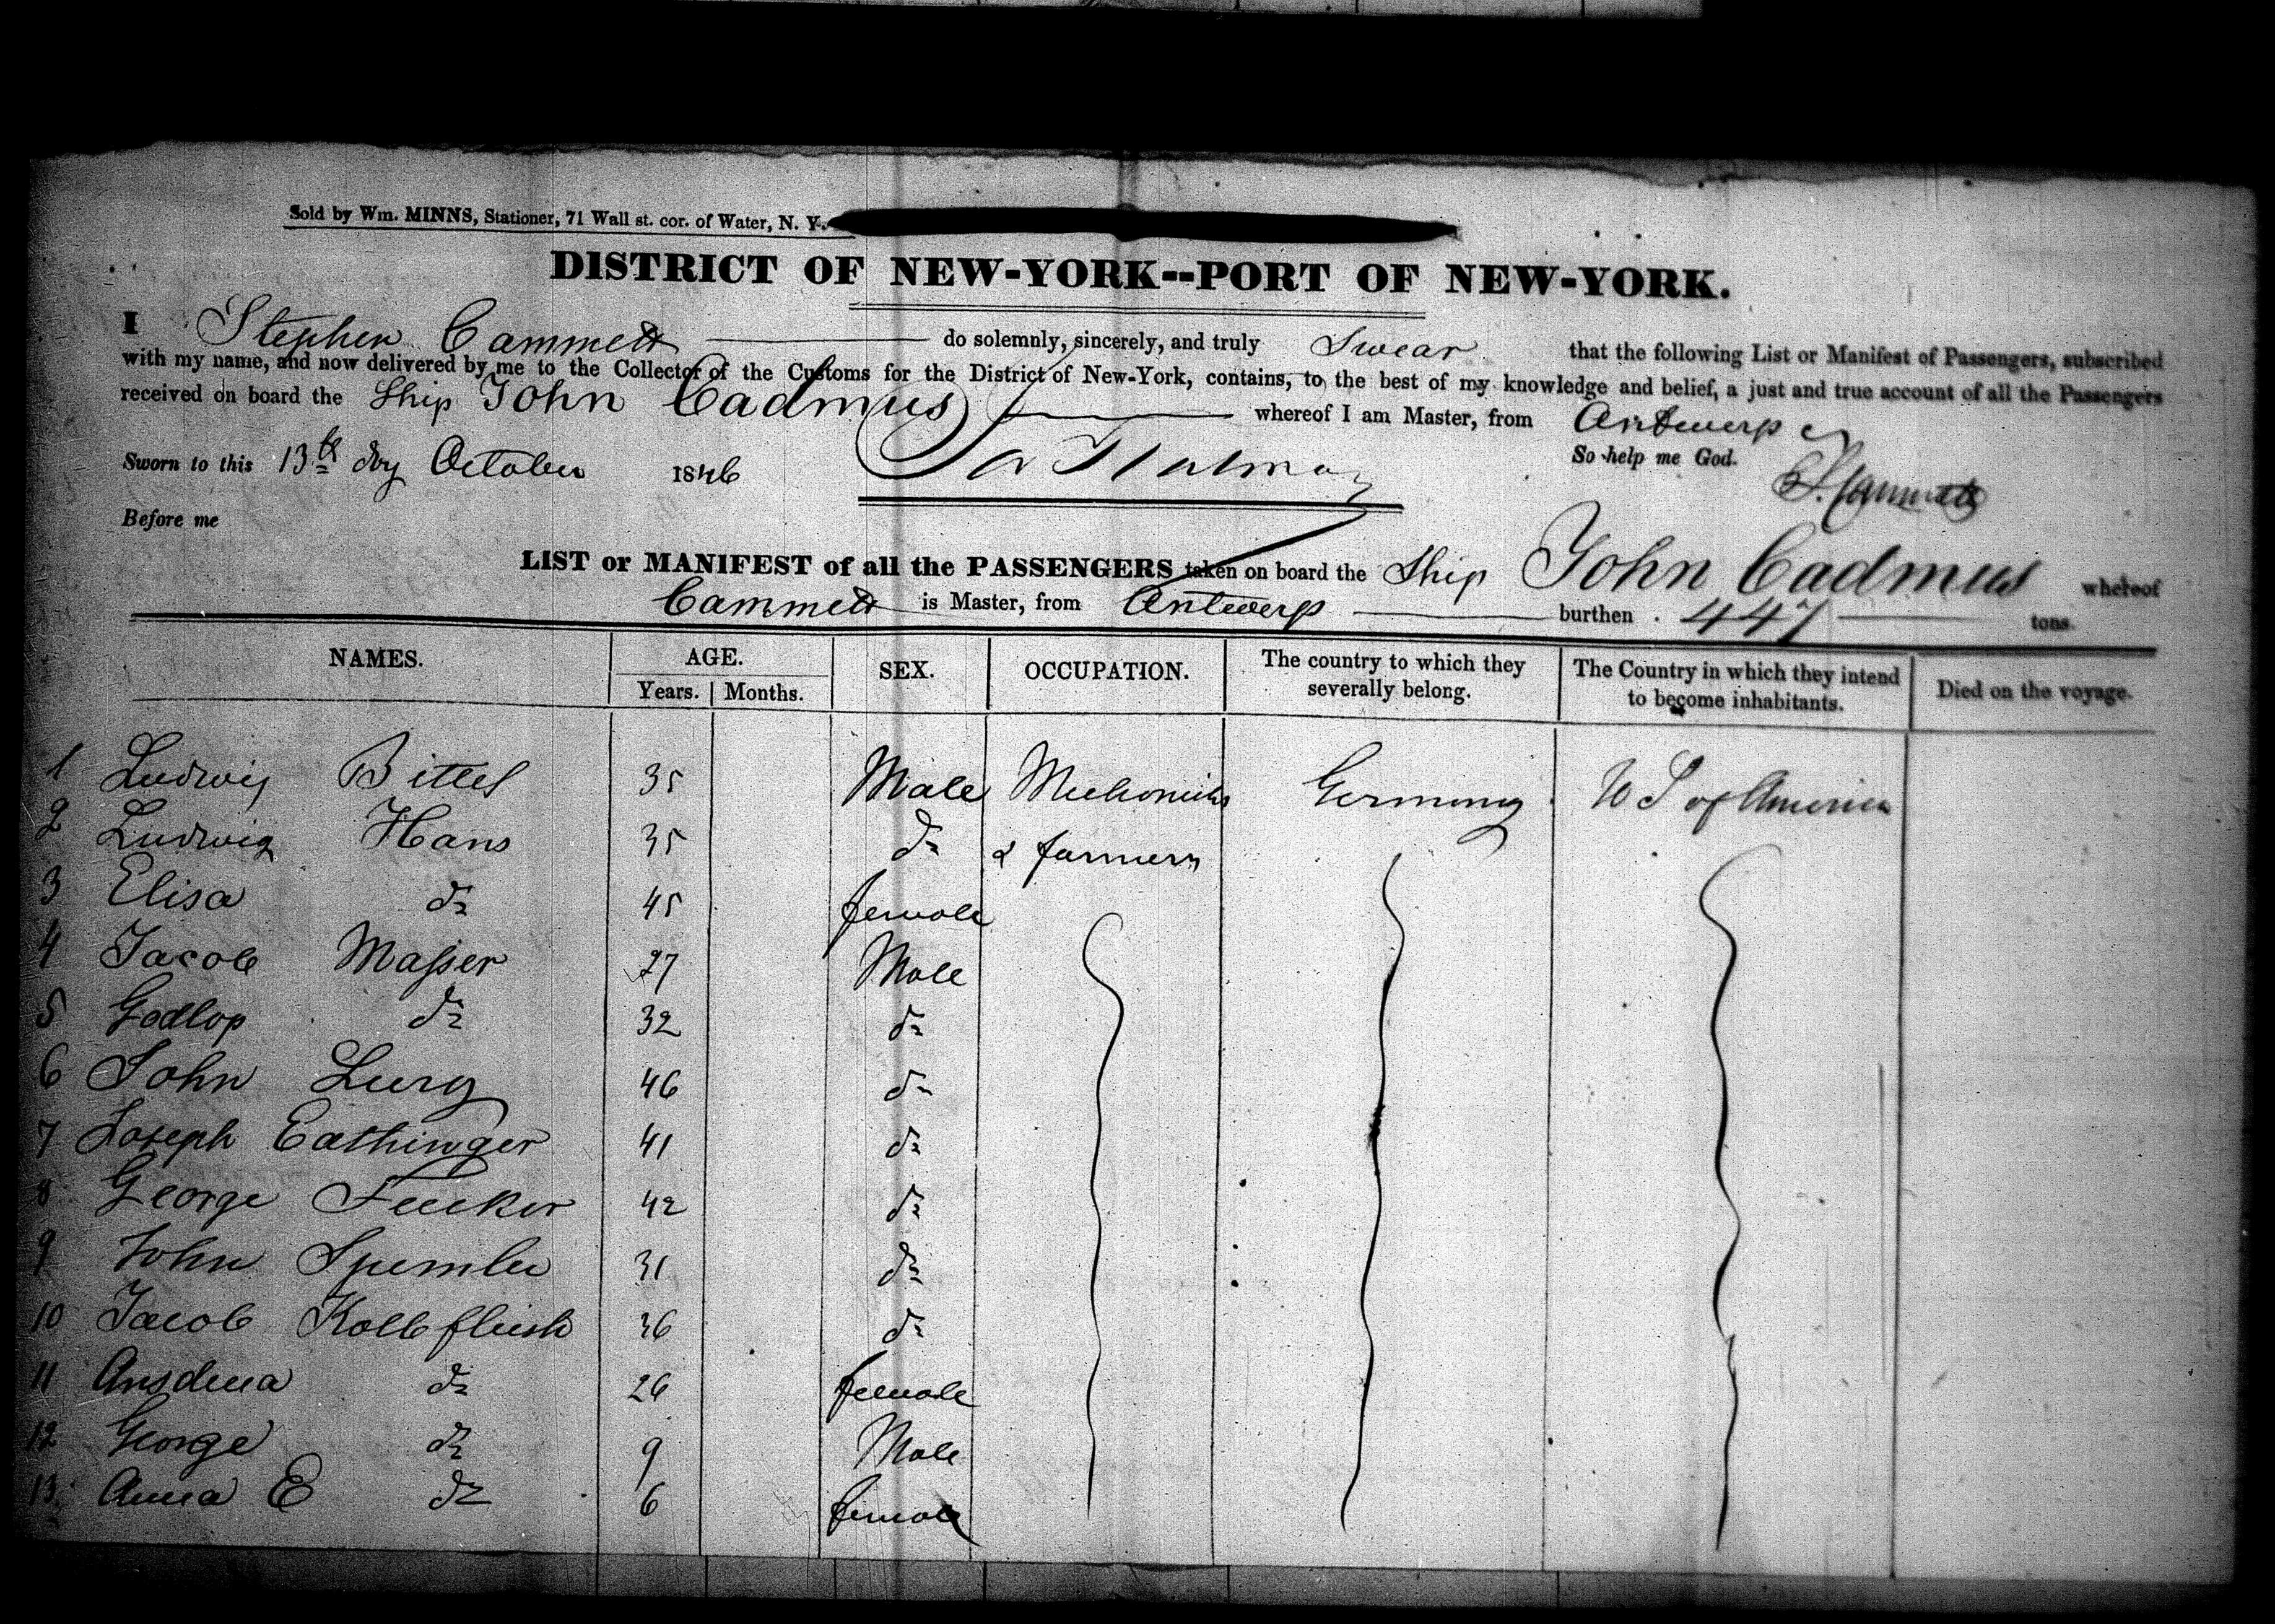 Sold by Wm. MINNS, Stationer, 71 Wall st. cor. of Water, N. Y.
DISTRICT OF NEW-YORK--PORT OF NEW-YORK.
I Stephen Cammett do solemnly, sincerely, and truly Swear that the following List or Manifest of Passengers, subscribed
with my name, and now delivered by me to the Collector of the Customs for the District of New-York, contains, to the best of my knowledge and belief, a just and true account of all the Passengers
received on board the Ship John Cadmus whereof I am Master, from Antwerp
So help me God.
Sworn to this 13th day October 1846
S. Cammett
Before me
LIST or MANIFEST of all the PASSENGERS taken on board the Ship John Cadmus whereof
Cammett is Master, from Antwerp burthen 447 tons.
NAMES. AGE. Years. Months. SEX. OCCUPATION. The country to which they severally belong. The Country in which they intend to become inhabitants. Died on the voyage.
1 Ludwig Bittel 35 Male Mechonicks Germany U S of America
2 Ludwig Hans 35 do & farmers
3 Elisa do 45 female
4 Jacob Masser 27 Male
5 Godlop do 32 do
6 John Lurg 46 do
7 Joseph Eathinger 41 do
8 George Feucker 42 do
9 John 31 do
10 Jacob Kolbfleish 36 do
11 do 26 female
12 George do 9 Male
13 Anna E do 6 female